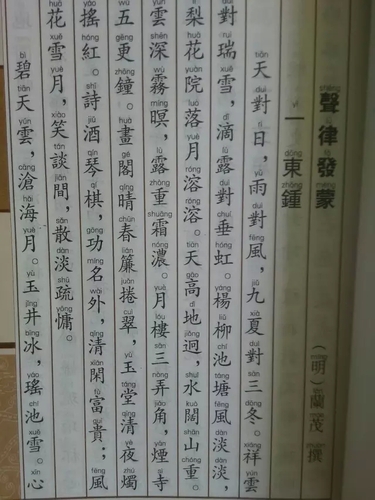 聲律發蒙
（明）蘭茂 撰
一東鍾
天對日，雨對風，九夏對三冬。祥雲
對瑞雪，滴露對垂虹。楊柳池塘風淡淡，
梨花院落月溶溶。天高地迥，水闊山重。
雲深霧暝，露重霜濃。月樓三弄角，煙寺
五更鐘。畫閣晴春簾捲翠，玉堂清夜燭
搖紅。詩酒琴棋，功名外，清閑富貴；風
花雪月，笑談間，散淡疏慵。
碧天雲，滄海月。玉井冰，瑤池雪。心